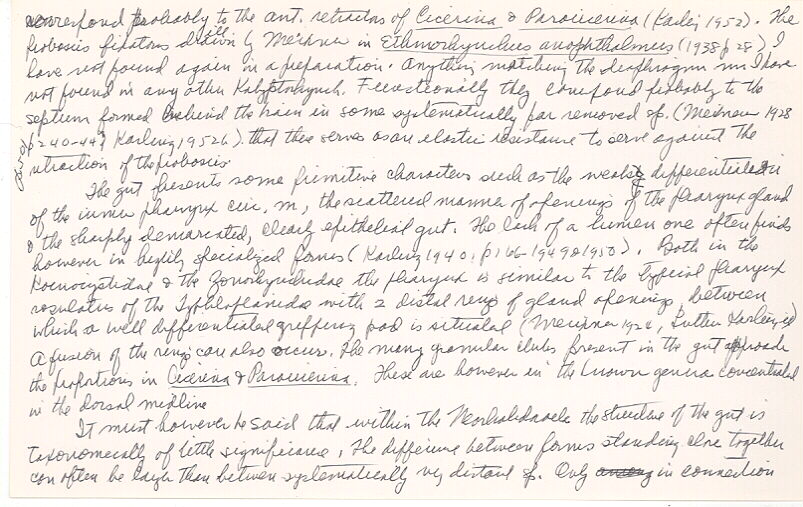 correspond probably to the ant. retractors of Cicerina & Paracicerina (Karling 1952). The
proboscis fixators drawn by Meixner in Ethmorhynchus anophthalmus (1938 p 28) I
have not found again in a preparation. Anything matching the diaphragm mm I have
not found in any other Kalyptorhynch. Functionally they compond probably to the
septum formed behind the brain in some systematically far removed sp. (Meixner 1928
p 240-44, Karling, 1952b) that these serves as an elastic resistance to serve against the
retraction of the proboscis.
The gut presents some primitive characters such as the weakly differentiated in
of the inner pharynx circ. m, the scattered manner of openings of the pharynx gland
& the sharply demarcated, clearly epithelial gut. The lack of a lumen one often finds
however in highly specialized forms (Karling 1940, p 166 - 1949 & 1950). Both in the
Koinocystidae & the Gonorhynchidae the pharynx is similar to the typical pharynx
rosulatus of the Typhloplanidae with 2 distal rings of gland openings, between
which a well differentiated gripping pad is situated (Meixner 1924, Luther, Karling, id)
A fusion of the rings can also occur. The many granular clubs present in the gut approach
the proportions in Cicerina & Paracicerina. These are however in the known genera concentrated
in the dorsal midline
It must however be said that within the Neorhabdocoela the structure of the gut is
taxonomically of little significance, The difference between forms standing close together
can often be larger than between systematically very distant sp. Only in connection